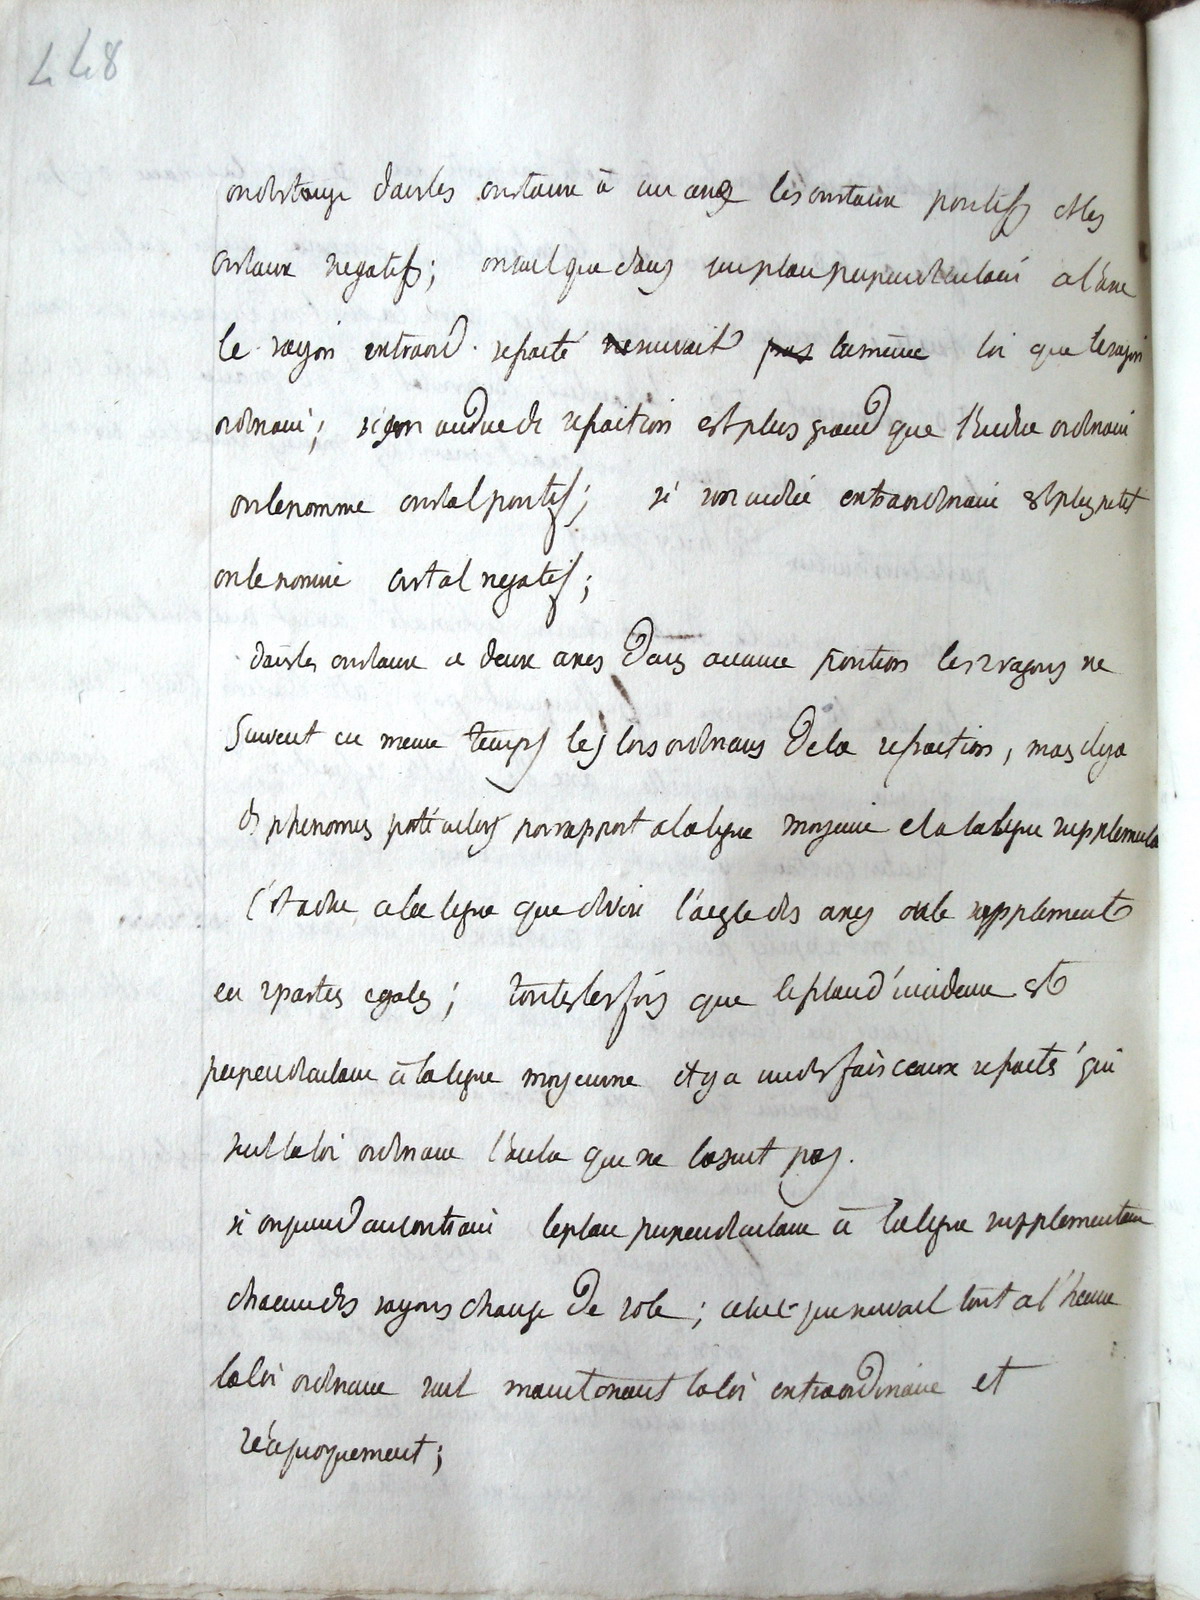 448
on distingue dans les cristaux à un axe les cristaux positifs et les
cristaux negatifs; on sait que dans un plan perpendiculaire a l'axe
le rayon extraord. refracté suivait la même loi que le rayon
ordinaire; si son indice de refraction est plus grand que l'indice ordinaire
on le nomme cristal positif; si son indice extraordinaire est plus petit
on le nomme cristal negatif;
dans les cristaux a deux axes dans aucune position les 2 rayons ne
suivent en meme temps les lois ordinaires de la refraction, mais il y a
des phenomenes particuliers par rapport a la ligne moyenne et a la ligne supplementaire
c'est a dire a la ligne que divise l'angle des axes ou le supplement
en 2 parties egales; toutes les fois que le plan d'incidence est
perpendiculaire à la ligne moyenne il y a un des faisceaux refractés qui
suit la loi ordinaire l'autre que ne la suit pas.
si on prend au contraire le plan perpendiculaire à la ligne supplementaire
chacun des rayons change de role; celui qui suivait tout a l'heure
la loi ordinaire suit maintenant la loi extraordinaire et
réciproquement;